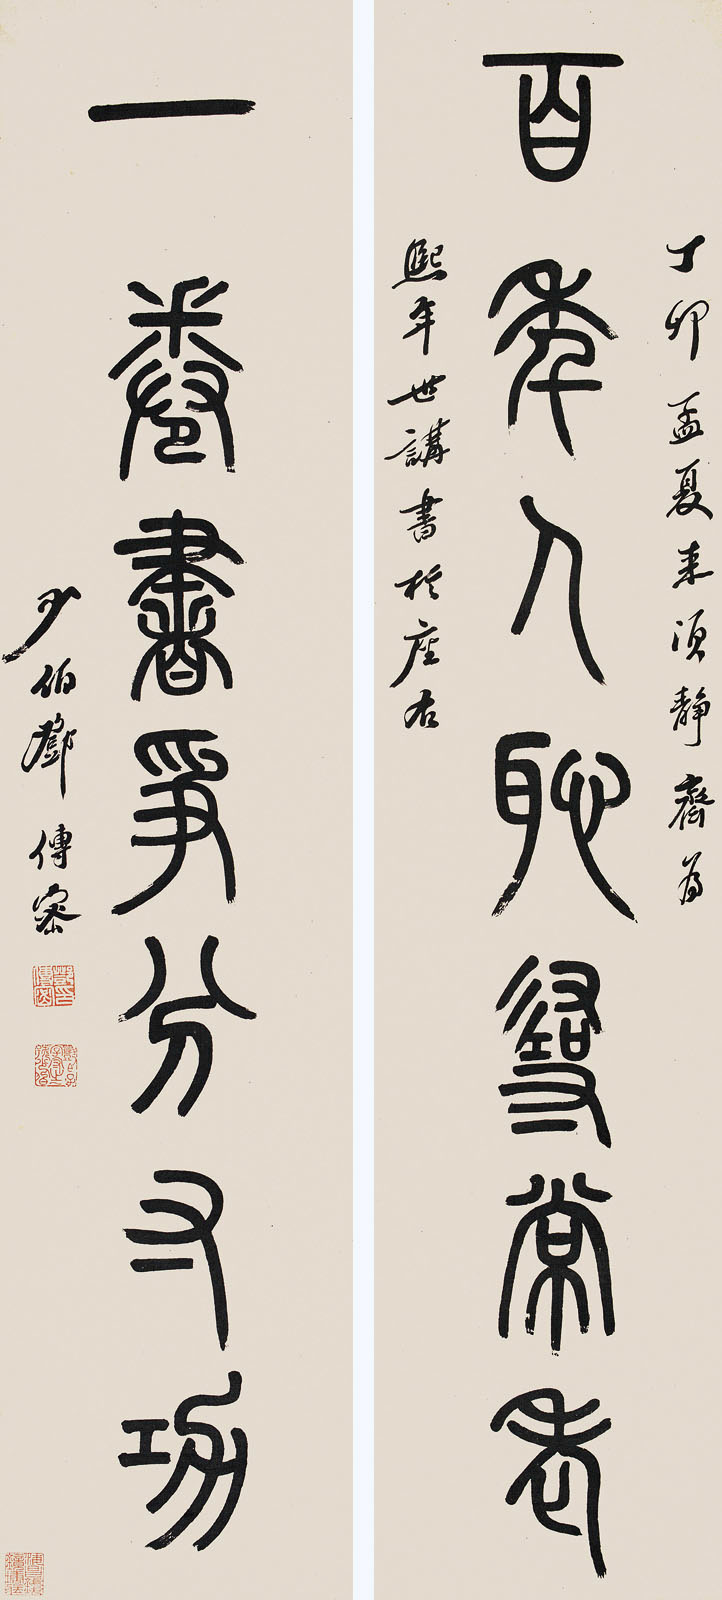 百年人恥尋常老
丁卯孟夏來須靜齋為
熙年世講書於座右
一卷書爭分寸功
少伯鄧傳密